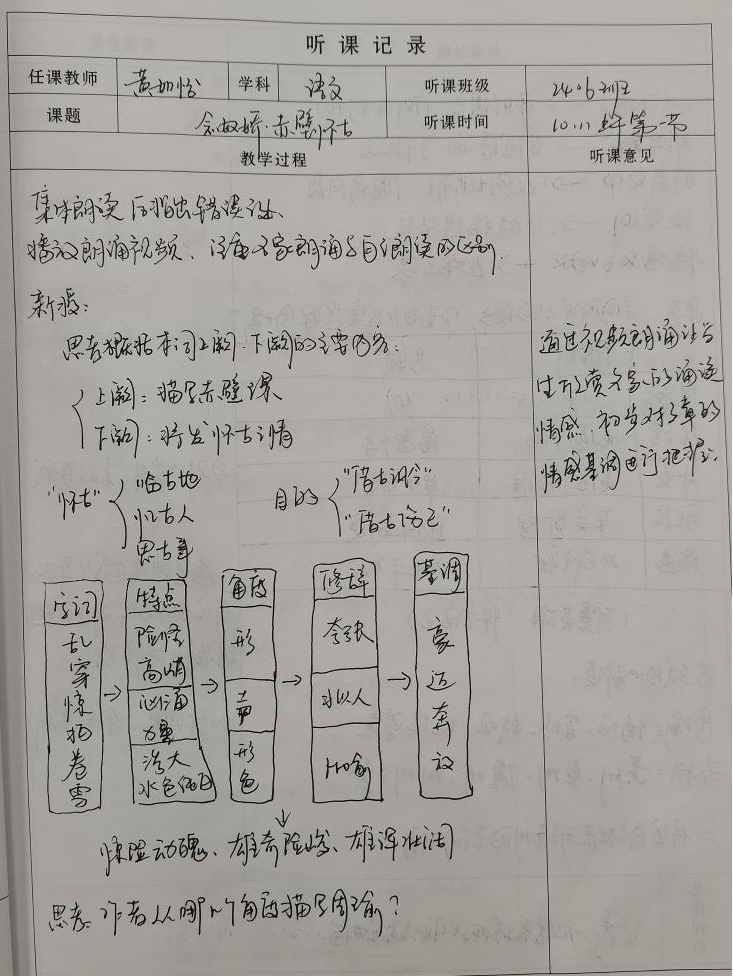 听课记录
任课教师 黄 学科 语文 听课班级 2406班
课题 念奴娇·赤壁怀古 听课时间 10.11 上午第一节
教学过程 听课意见
集体朗读后指出错误读法、
播放朗诵视频、注重名家朗诵与自己朗读的区别.
新授:
思考概括本词上阕、下阕的主要内容:
上阕:描写赤壁景
下阕:抒发怀古之情
通过视频朗诵让学
生欣赏名家的诵读
情感、初步对文章的
情感基调进行把握.
"怀古" 临古地
忆古人
思古事
目的 "借古讽今"
"借古伤己"
字词 特点 角度 修辞 基调
乱 穿 惊 拍 卷 雪
险怪 高峭
汹涌 力量
浩大 水色
形 声 形 色
夸张 拟人 比喻
豪迈奔放
惊险动魄、雄奇险峻、雄浑壮阔
思考:作者从哪几个角度描写周瑜?